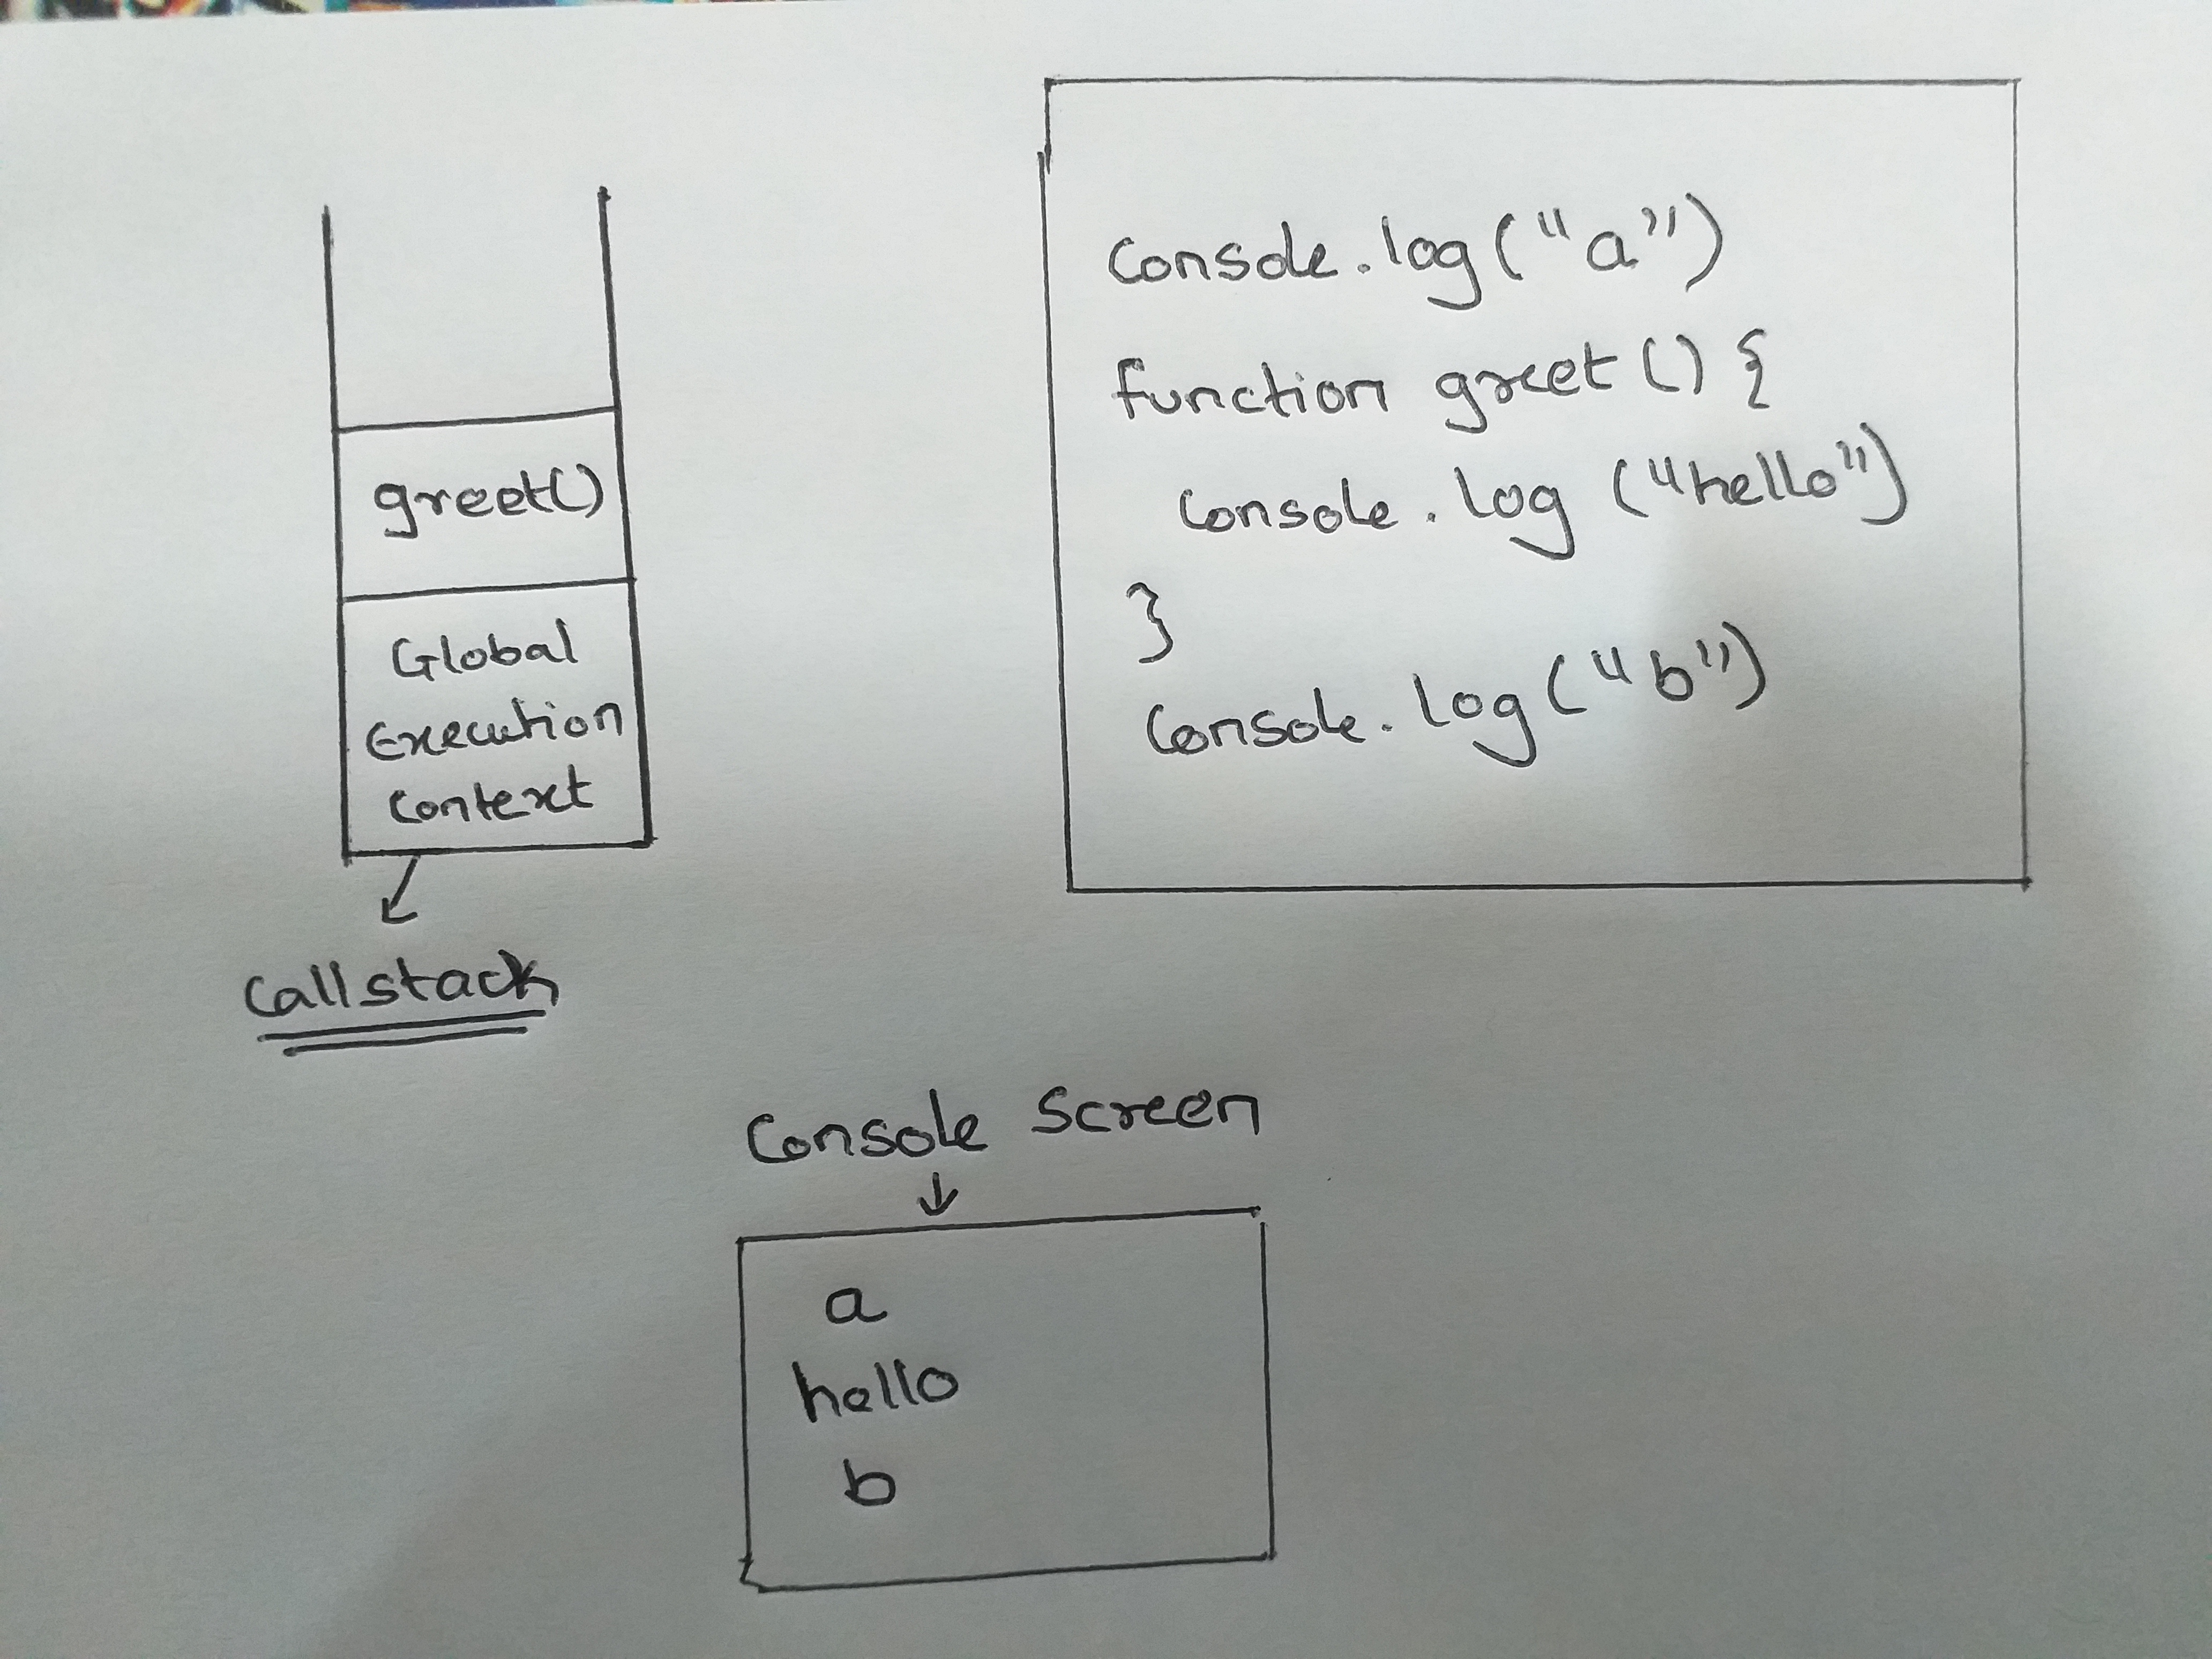 greet()
Global
Execution
Context
Callstack
Console.log("a")
function greet() {
Console.log ("hello")
}
Console.log("b")
Console Screen
a
hello
b